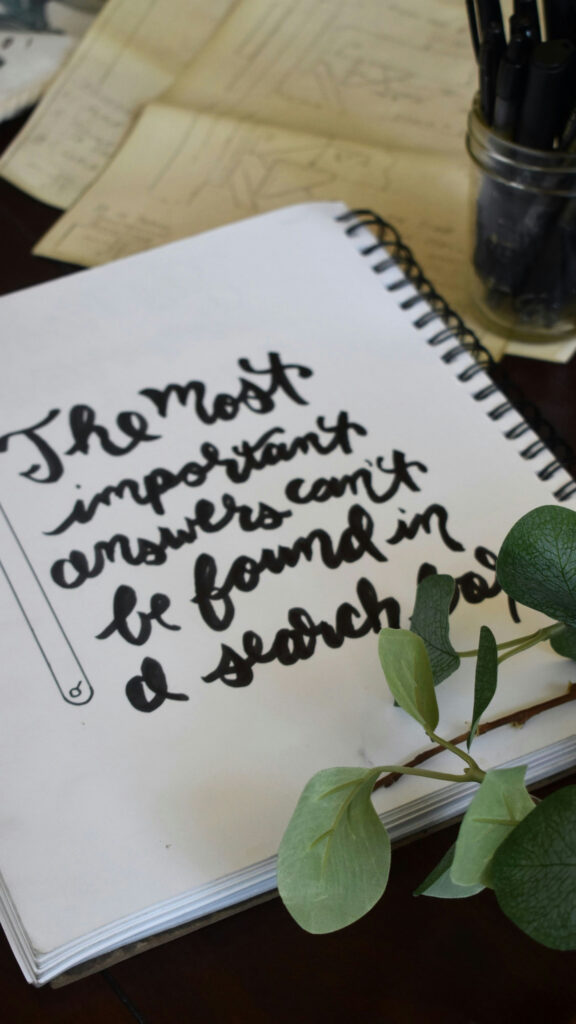 The most
important
answers can't
be found in
a search box